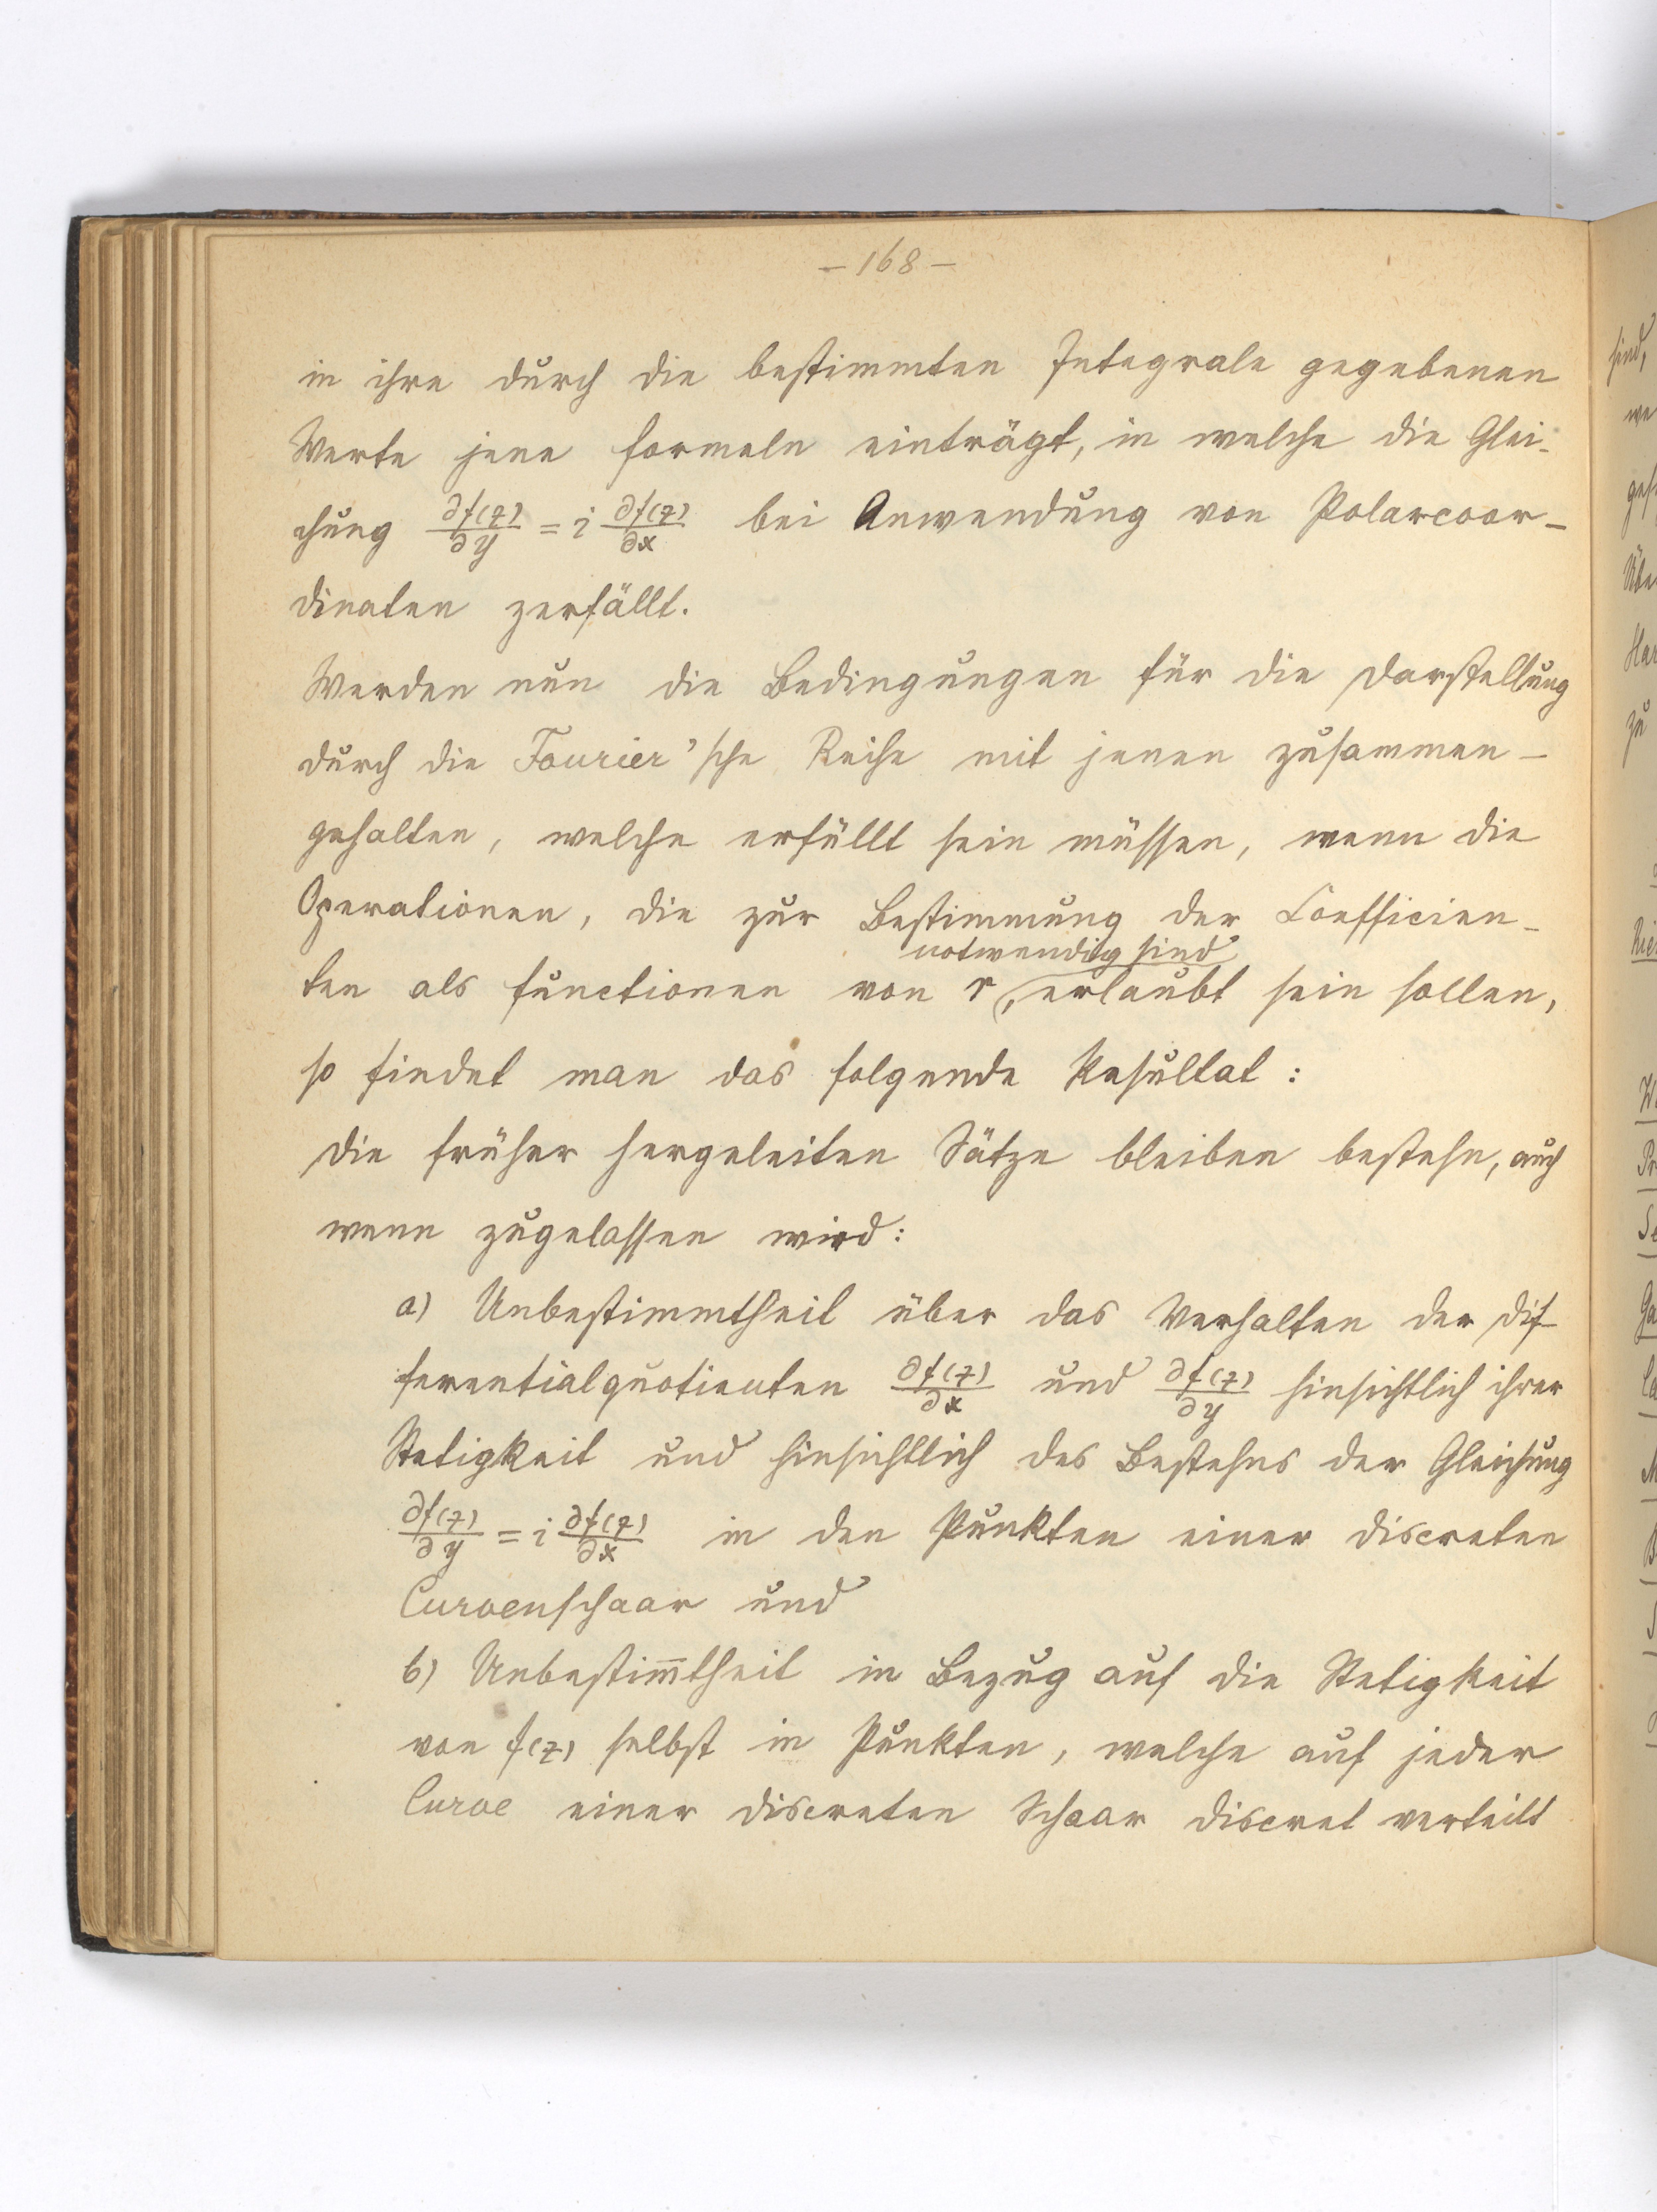 – 168 –
in ihre durch die bestimmten Integrale gegebenen
Werte jene Formeln einträgt, in welche die Glei-
chung ∂f(z)/∂y = i ∂f(z)/∂x bei Anwendung von Polarcoor-
dinaten zerfällt.
Werden nun die Bedingungen für die Darstellung
durch die Fourier'sche Reihe mit jenen zusammen-
gehalten, welche erfüllt sein müssen, wenn die
Operationen, die zur Bestimmung der Coefficien-
notwendig sind
ten als Functionen von r, erlaubt sein sollen,
so findet man das folgende Resultat:
Die früher hergeleiten Sätze bleiben bestehn, auch
wenn zugelassen wird:
a) Unbestimmtheit über das Verhalten der Dif-
ferentialquotienten ∂f(z)/∂x und ∂f(z)/∂y hinsichtlich ihrer
Stetigkeit und hinsichtlich des Bestehns der Gleichung
∂f(z)/∂y = i ∂f(z)/∂x in den Punkten einer discreten
Curvenschaar und
b) Unbestim̅theit in Bezug auf die Stetigkeit
von f(z) selbst in Punkten, welche auf jeder
Curve einer discreten Schaar discret verteilt
sind,
zu